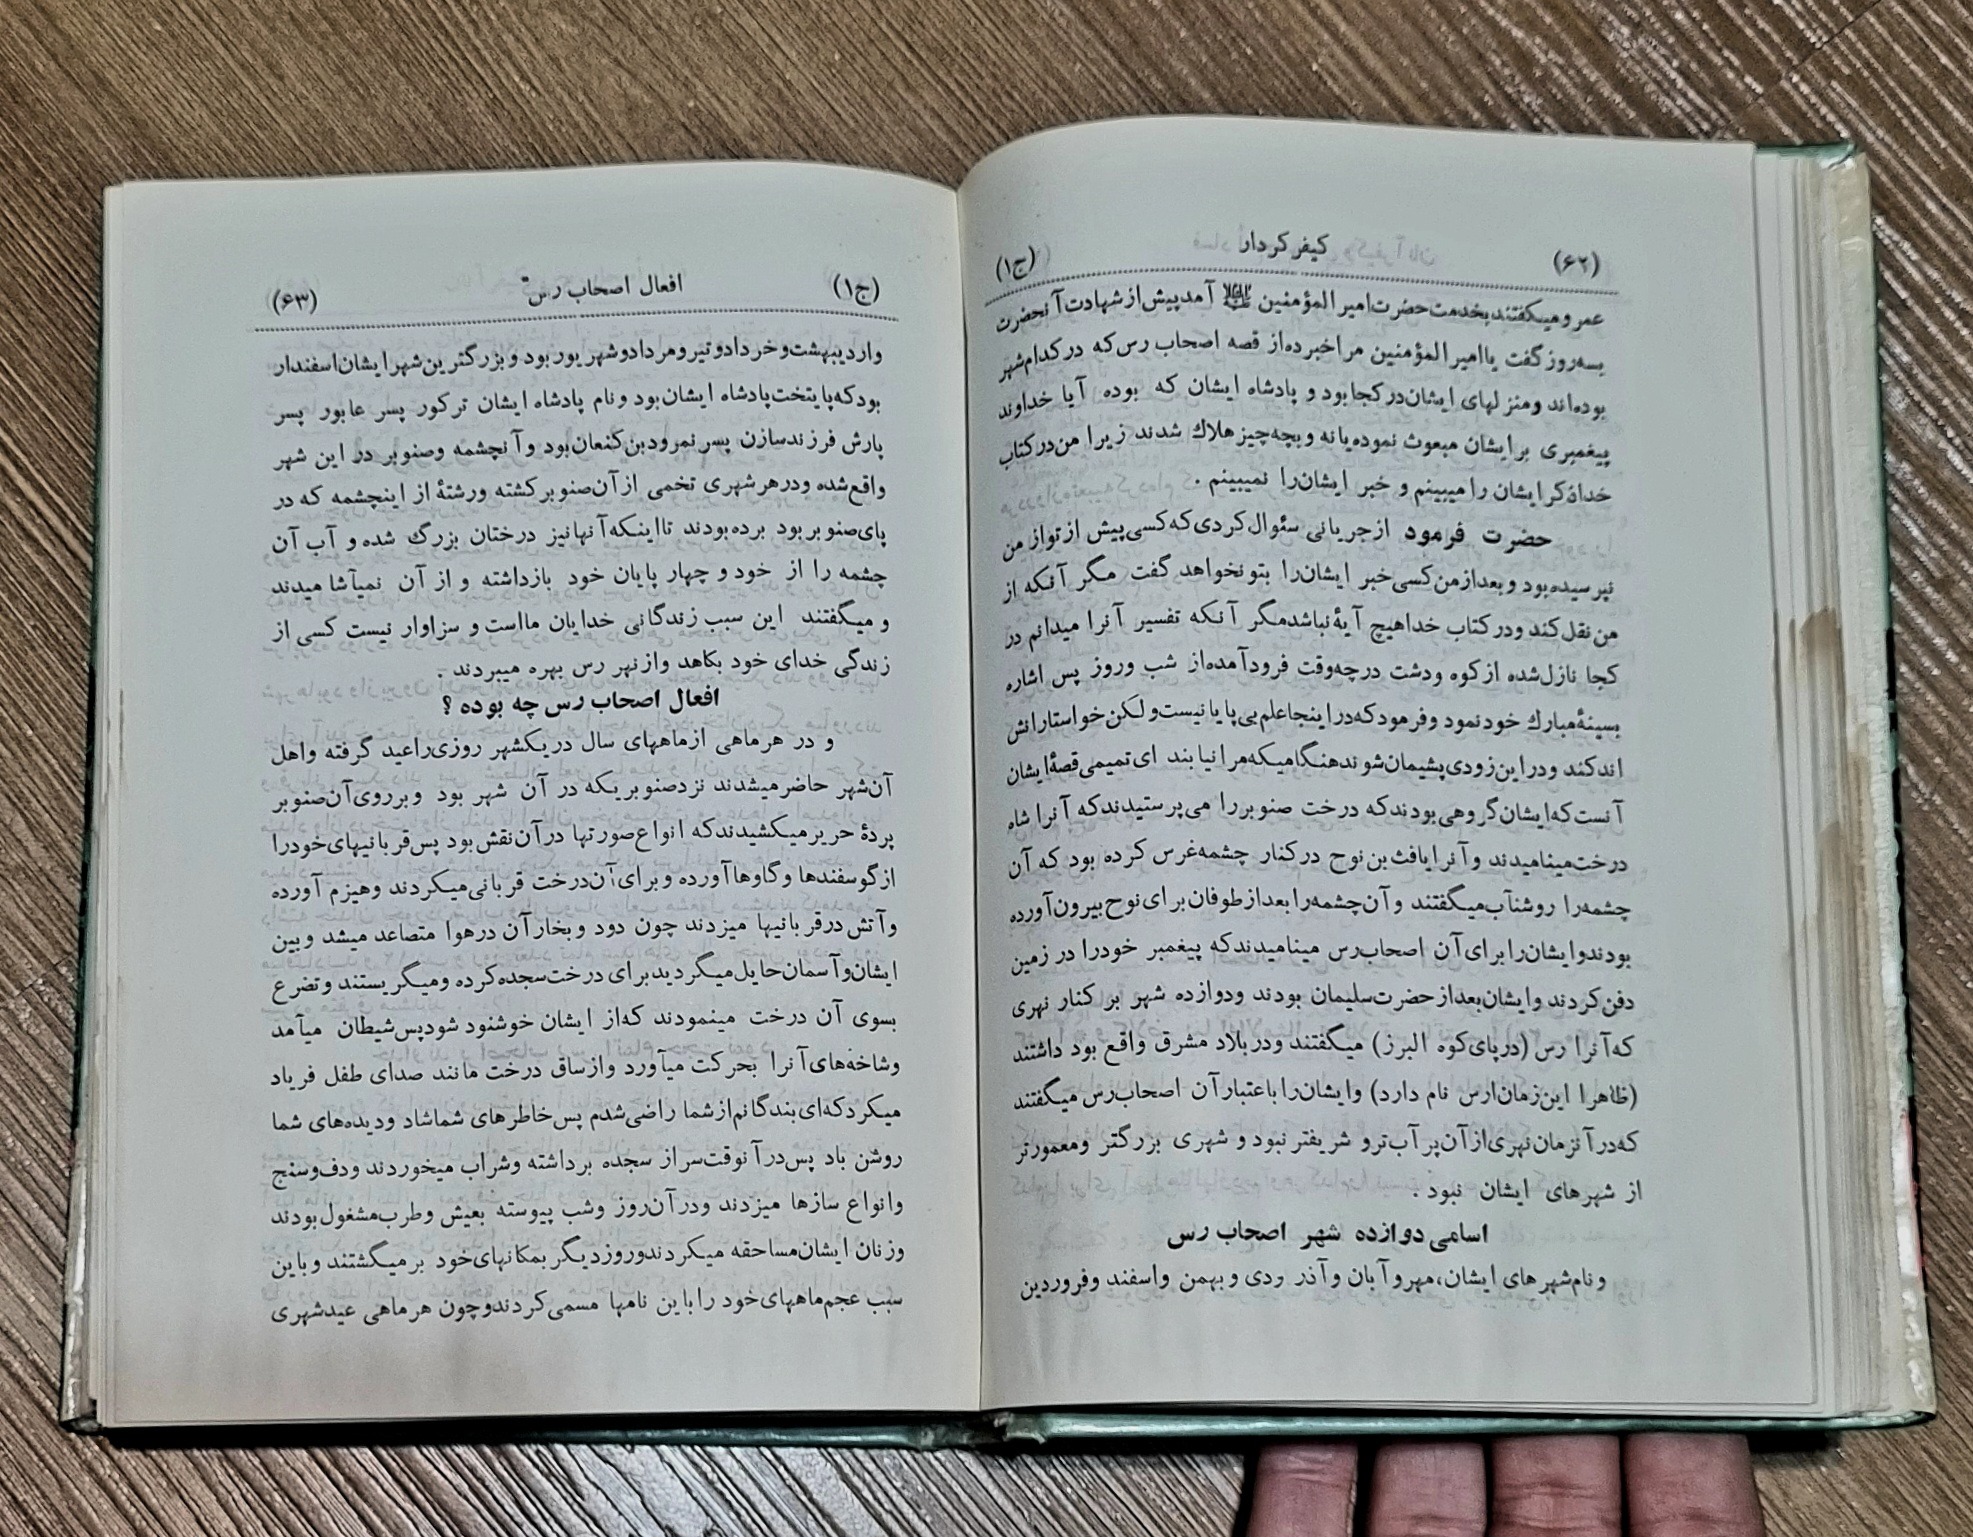 (۶۲) کیفر کردار (ج۱)
عمرو میگفتند بخدمت حضرت امیرالمؤمنین علیه السلام آمد پیش از شهادت آنحضرت
بسه روز گفت یا امیرالمؤمنین مرا خبر ده از قصه اصحاب رس که در کدام شهر
بوده‌اند ومنزلهای ایشان در کجا بود و پادشاه ایشان که بوده آیا خداوند
پیغمبری بر ایشان مبعوث نموده یا نه و بچه چیز هلاك شدند زیرا من در کتاب
خدا ذکر ایشان را میبینم و خبر ایشان‌را نمیبینم .
حضرت فرمود از جریانی سئوال کردی که کسی پیش از تو از من
نپرسیده بود و بعد از من کسی خبر ایشان‌را بتو نخواهد گفت مگر آنکه از
من نقل کند ودر کتاب خدا هیچ آیهٔ نباشد مگر آنکه تفسیر آنرا میدانم در
کجا نازل شده از کوه ودشت در چه وقت فرود آمده از شب وروز پس اشاره
بسینهٔ مبارك خود نمود و فرمود که در اینجا علم بی پایانیست ولکن خواستارانش
اندکند و در این زودی پشیمان شوند هنگامیکه مرا نیابند ای تمیمی قصهٔ ایشان
آنست که ایشان گروهی بودند که درخت صنوبر را می پرستیدند که آنرا شاه
درخت مینامیدند و آنرا یافث بن نوح در کنار چشمه غرس کرده بود که آن
چشمه را روشنآب میگفتند و آن چشمه را بعد از طوفان برای نوح بیرون آورده
بودند و ایشان را برای آن اصحاب رس مینامیدند که پیغمبر خود را در زمین
دفن کردند و ایشان بعد از حضرت سلیمان بودند ودوازده شهر بر کنار نهری
که آنرا رس (در پای کوه البرز) میگفتند ودر بلاد مشرق واقع بود داشتند
(ظاهرا این زمان ارس نام دارد) و ایشان را باعتبار آن اصحاب رس میگفتند
که در آنزمان نهری از آن پر آب تر و شریفتر نبود و شهری بزرگتر ومعمورتر
از شهرهای ایشان نبود .
اسامی دوازده شهر اصحاب رس
و نام شهرهای ایشان، مهر و آبان و آذر ودی و بهمن و اسفند و فروردین
(ج۱) افعال اصحاب رس (۶۳)
و اردیبهشت و خرداد و تیر و مرداد و شهریور بود و بزرگترین شهر ایشان اسفندار
بود که پایتخت پادشاه ایشان بود و نام پادشاه ایشان ترکور پسر عابور پسر
یارش فرزند سازن پسر نمرود بن کنعان بود و آنچشمه وصنوبر در این شهر
واقع شده ودر هر شهری تخمی از آن صنوبر کشته ورشتهٔ از اینچشمه که در
پای صنوبر بود برده بودند تا اینکه آنها نیز درختان بزرگ شده و آب آن
چشمه را از خود و چهار پایان خود بازداشته و از آن نمیآشامیدند
و میگفتند این سبب زندگانی خدایان ما است و سزاوار نیست کسی از
زندگی خدای خود بکاهد و از نهر رس بهره میبردند .
افعال اصحاب رس چه بوده ؟
و در هر ماهی از ماههای سال در یکشهر روزی را عید گرفته و اهل
آن شهر حاضر میشدند نزد صنوبریکه در آن شهر بود وبر روی آن صنوبر
پردهٔ حریر میکشیدند که انواع صورتها در آن نقش بود پس قربانیهای خود را
از گوسفندها و گاوها آورده و برای آن درخت قربانی میکردند وهیزم آورده
و آتش در قربانیها میزدند چون دود و بخار آن در هوا متصاعد میشد و بین
ایشان و آسمان حایل میگردید برای درخت سجده کرده و میگریستند و تضرع
بسوی آن درخت مینمودند که از ایشان خوشنود شود پس شیطان میآمد
و شاخه‌های آنرا بحرکت میآورد و از ساق درخت مانند صدای طفل فریاد
میکرد که ای بندگانم از شما راضی شدم پس خاطرهای شما شاد و دیده‌های شما
روشن باد پس در آنوقت سر از سجده برداشته و شراب میخوردند ودف و سنج
و انواع سازها میزدند ودر آن روز وشب پیوسته بعیش وطرب مشغول بودند
وزنان ایشان مساحقه میکردند و روز دیگر بمکانهای خود بر میگشتند و باین
سبب عجم ماههای خود را باین نامها مسمی کردند و چون هر ماهی عید شهری